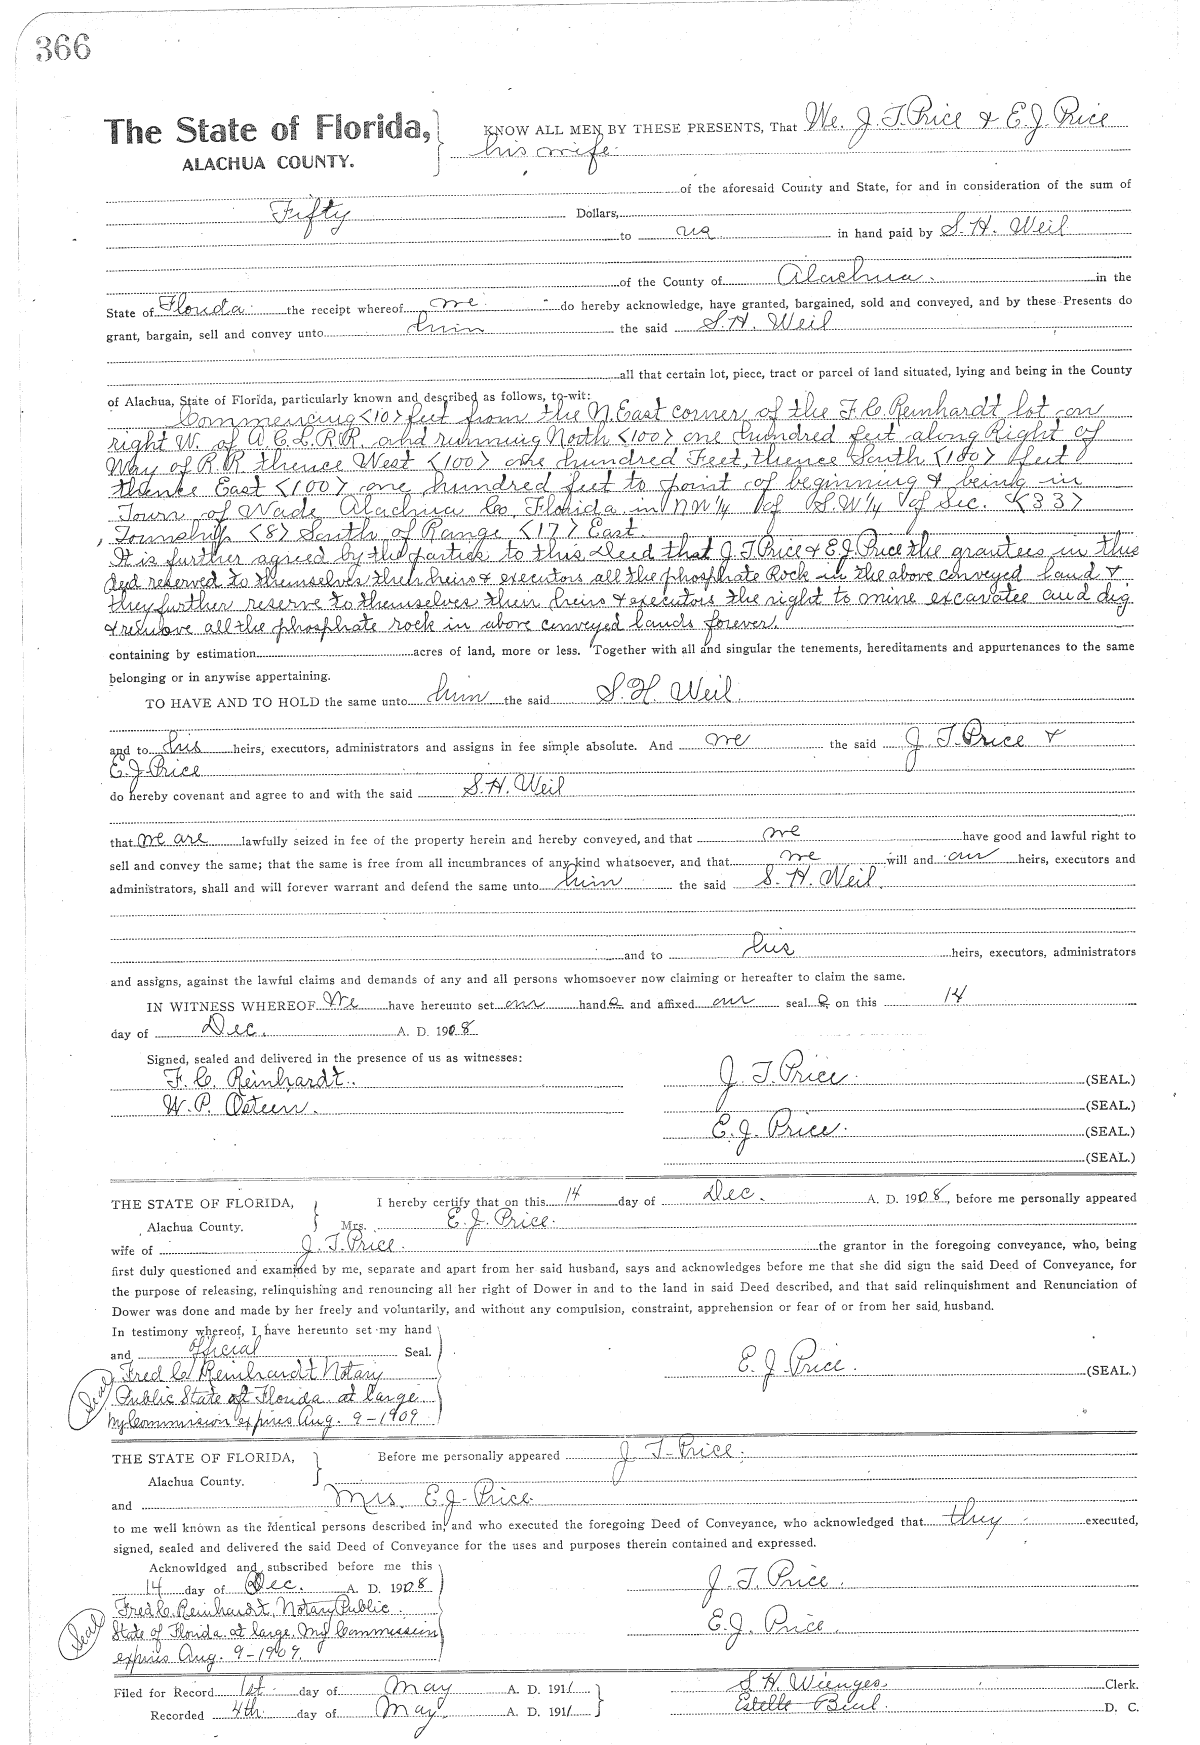 366
The State of Florida, KNOW ALL MEN BY THESE PRESENTS, That We. J. T. Price & E. J. Price
ALACHUA COUNTY. his wife.
of the aforesaid County and State, for and in consideration of the sum of
Fifty Dollars,
to us in hand paid by S. H. Weil
of the County of Alachua. in the
State of Florida the receipt whereof we do hereby acknowledge, have granted, bargained, sold and conveyed, and by these Presents do
grant, bargain, sell and convey unto him the said S. H. Weil
all that certain lot, piece, tract or parcel of land situated, lying and being in the County
of Alachua, State of Florida, particularly known and described as follows, to-wit:
Commencing <10> feet from the N. East corner of the F. C. Reinhardt lot on
right W. of A. C. L. R. R. and running North <100> one hundred feet along Right of
Way of R. R. thence West <100> one hundred Feet, thence South <100> feet
thence East <100> one hundred feet to point of beginning & being in
Town of Wade Alachua Co, Florida in NW 1/4 of S. W 1/4 of Sec. <33>
Township <8> South of Range <17> East
It is further agreed by the parties to this Deed that J. T. Price & E J Price the grantees in this
deed reserved to themselves their heirs & executors all the phosphate Rock in the above conveyed land &
they further reserve to themselves their heirs & executors the right to mine excavatee and dig
& remove all the phosphate rock in above conveyed lands forever.
containing by estimation acres of land, more or less. Together with all and singular the tenements, hereditaments and appurtenances to the same
belonging or in anywise appertaining.
TO HAVE AND TO HOLD the same unto him the said S. H. Weil
and to his heirs, executors, administrators and assigns in fee simple absolute. And we the said J. T. Price &
E. J Price
do hereby covenant and agree to and with the said S. H. Weil
that we are lawfully seized in fee of the property herein and hereby conveyed, and that we have good and lawful right to
sell and convey the same; that the same is free from all incumbrances of any kind whatsoever, and that we will and our heirs, executors and
administrators, shall and will forever warrant and defend the same unto him the said S. H. Weil.
and to his heirs, executors, administrators
and assigns, against the lawful claims and demands of any and all persons whomsoever now claiming or hereafter to claim the same.
IN WITNESS WHEREOF We have hereunto set our hands and affixed our seal s on this 14
day of Dec. A. D. 1908
Signed, sealed and delivered in the presence of us as witnesses:
F. C. Reinhardt. J. T. Price. (SEAL.)
W. P. Osteen. (SEAL.)
E. J. Price. (SEAL.)
(SEAL.)
THE STATE OF FLORIDA, I hereby certify that on this 14 day of Dec. A. D. 1908, before me personally appeared
Alachua County. Mrs. E. J. Price.
wife of J. T. Price. the grantor in the foregoing conveyance, who, being
first duly questioned and examined by me, separate and apart from her said husband, says and acknowledges before me that she did sign the said Deed of Conveyance, for
the purpose of releasing, relinquishing and renouncing all her right of Dower in and to the land in said Deed described, and that said relinquishment and Renunciation of
Dower was done and made by her freely and voluntarily, and without any compulsion, constraint, apprehension or fear of or from her said husband.
In testimony whereof, I have hereunto set my hand
and official Seal.
Seal Fred C. Reinhardt Notary E. J Price. (SEAL)
Public State of Florida at large
My Commission expires Aug. 9-1909
THE STATE OF FLORIDA, Before me personally appeared J. T. Price.
Alachua County.
and Mrs. E. J. Price
to me well known as the identical persons described in, and who executed the foregoing Deed of Conveyance, who acknowledged that they executed,
signed, sealed and delivered the said Deed of Conveyance for the uses and purposes therein contained and expressed.
Acknowldged and subscribed before me this
14 day of Dec. A. D. 1908 J. T. Price.
Fred C. Reinhardt, Notary Public
Seal State of Florida at large. My Commission E. J. Price.
expires Aug. 9-1909.
Filed for Record 1st day of May A. D. 1911 S. H. Wienges Clerk.
Recorded 4th day of May A. D. 1911 Estelle D. C.